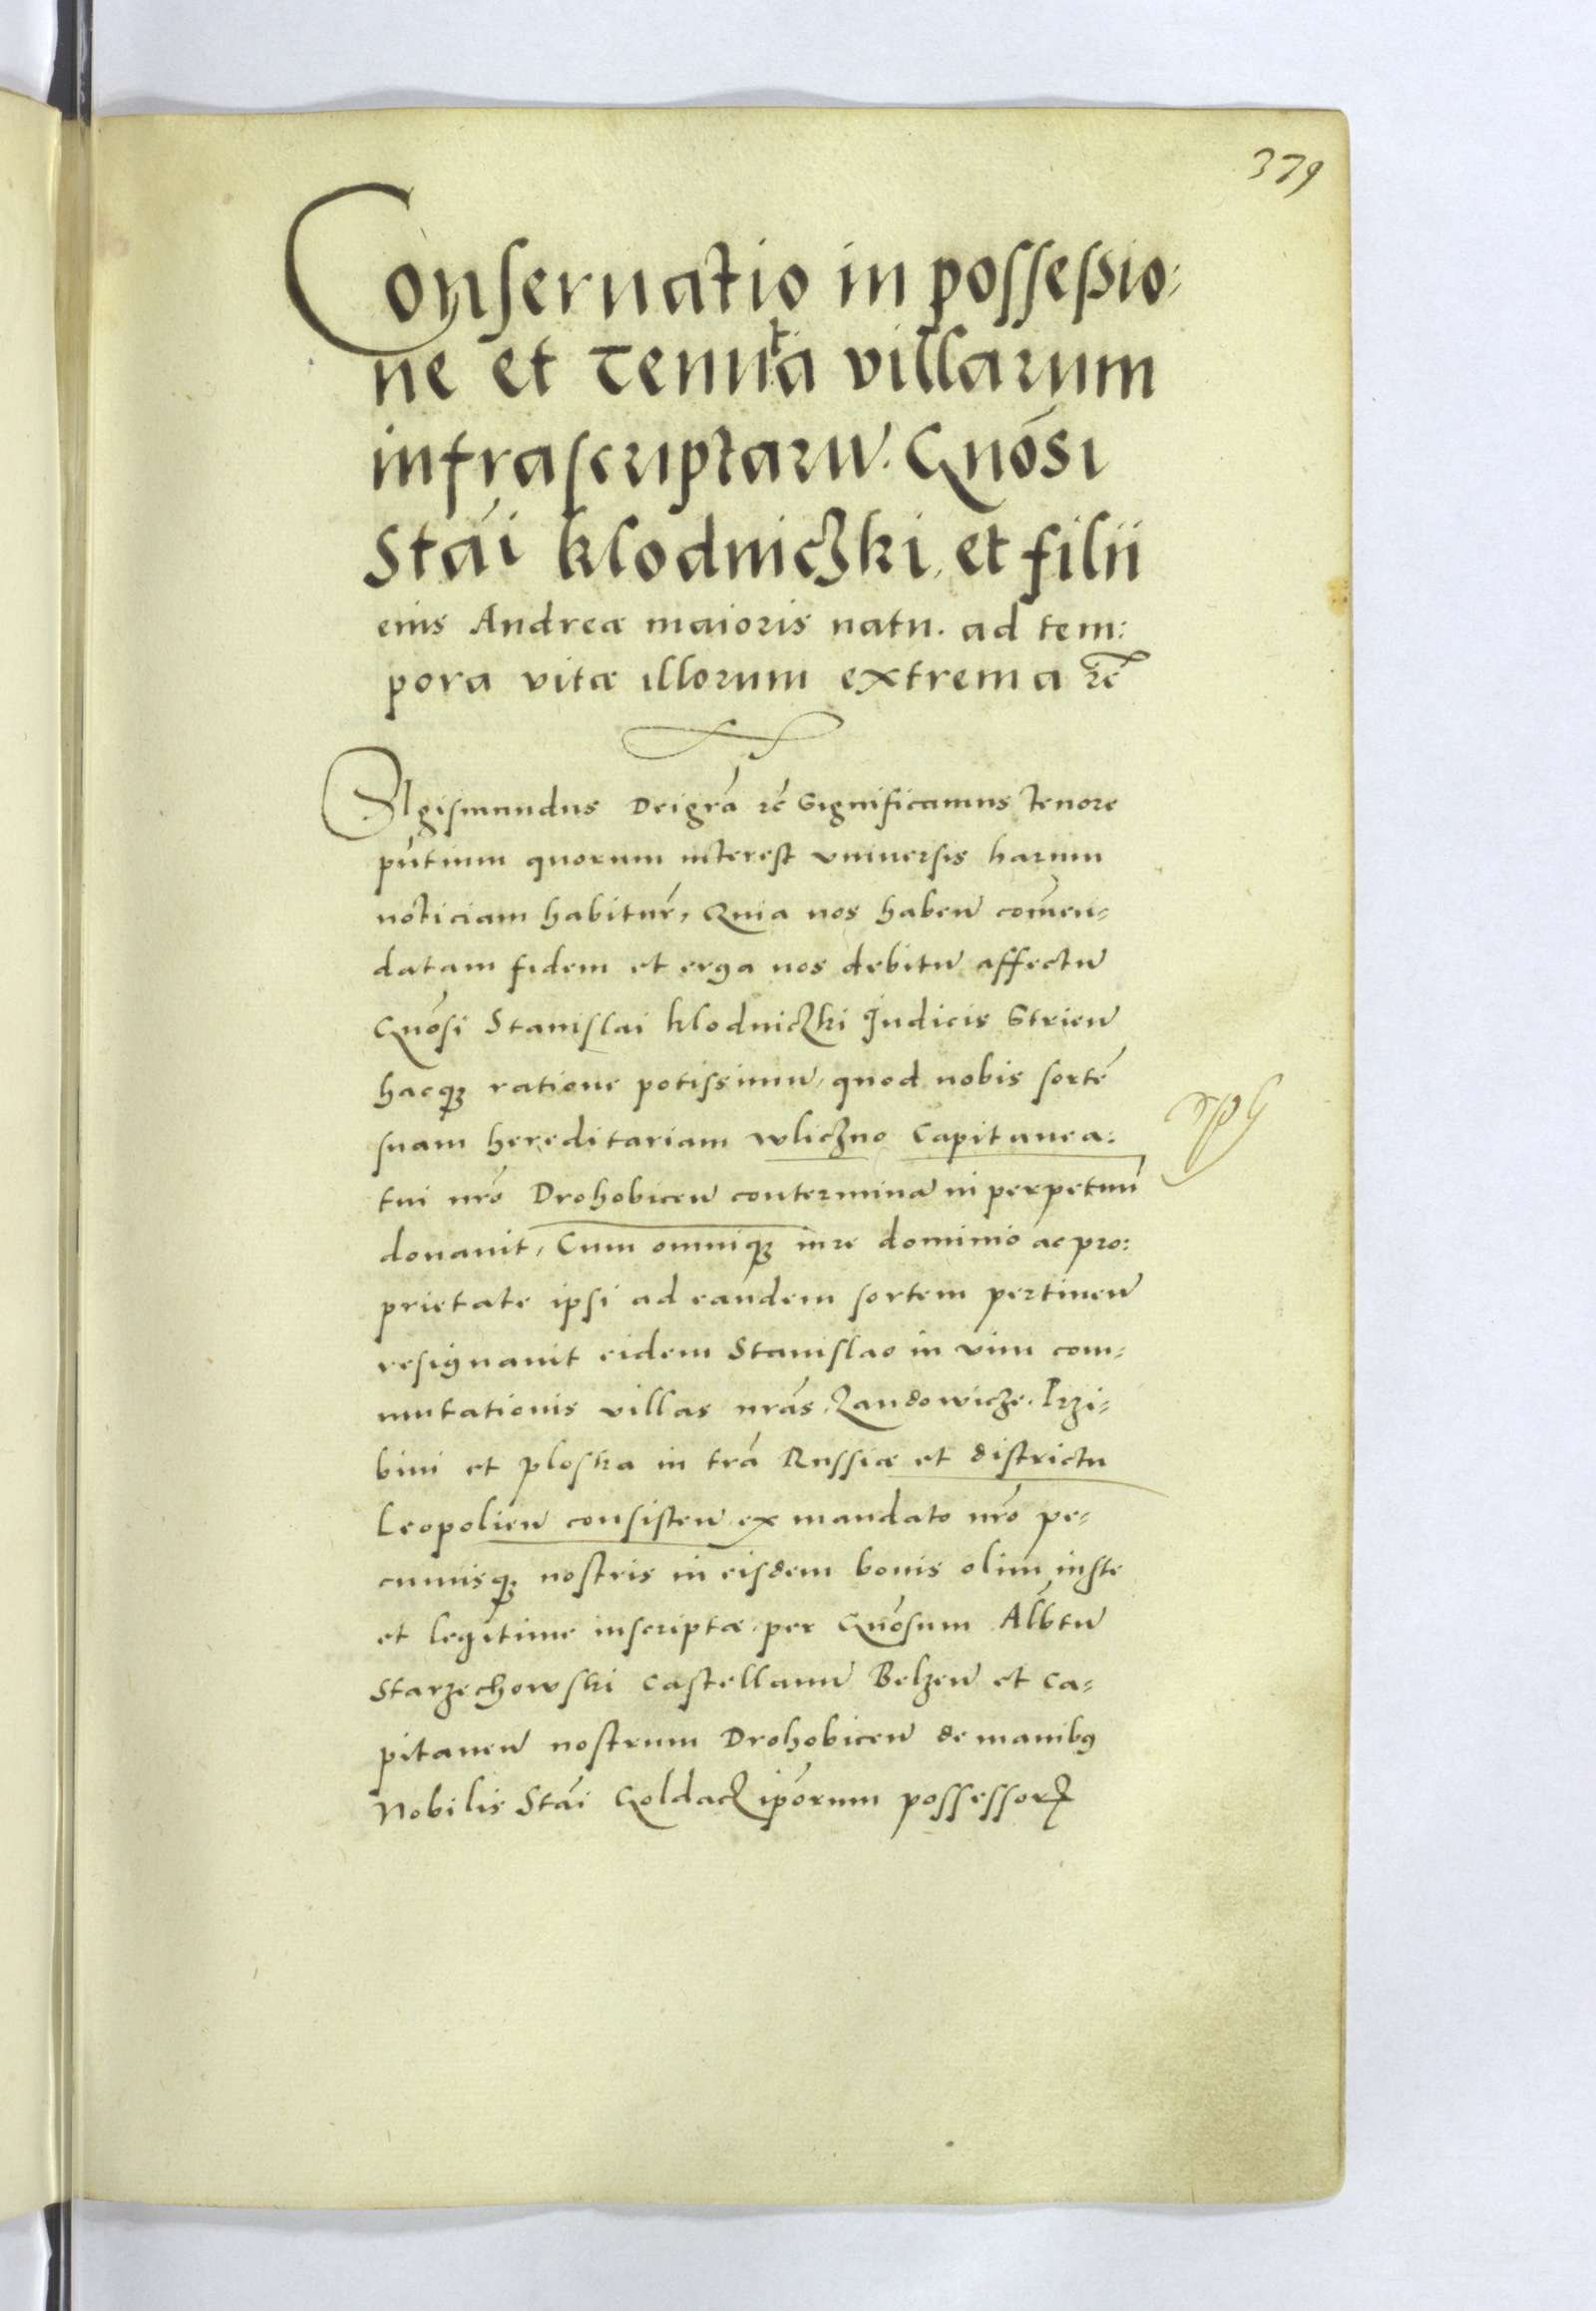 379
Conseruatio in possessio:
ne et tenuta villarum
infrascriptaru. Gnōsi
Stāi klodniczki, et filii
eius Andreæ maioris natu. ad tem:
pora vitæ illorum extrema rc̄
Sigismundus Dei grā rc̄ Significamus tenore
pn̄tium quorum interest vniuersis harum
noticiam habitur̄, Quia nos haben̄ com̄en-
datam fidem et erga nos debitū affectū
Gnōsi Stanislai klodniczki Judicis Strien̄
hacq3 ratione potissimū, quod nobis sortē
suam hereditariam wliczno Capitanea:
tui nrō Drohobicen̄ conterminā in perpetuū
donauit, Cum omniq3 iure dominio ac pro:
prietate ipsi ad eandem sortem pertinen̄
resignauit eidem Stanislao in vim com-
mutationis villas nrās, Zandowicze, Przi-
bini et ploska in trā Russiæ et districtu
Leopolien̄ consisten̄ ex mandato nrō pe-
cuniisq3 nostris in eisdem bonis olim iuste
et legitime inscriptæ, per Gnōsum Albtū
Starzechowski Castellanū Belzen̄ et Ca-
pitaneū nostrum Drohobicen̄ de manibus
Nobilis Stāi Goldacz ipōrum possessor̄